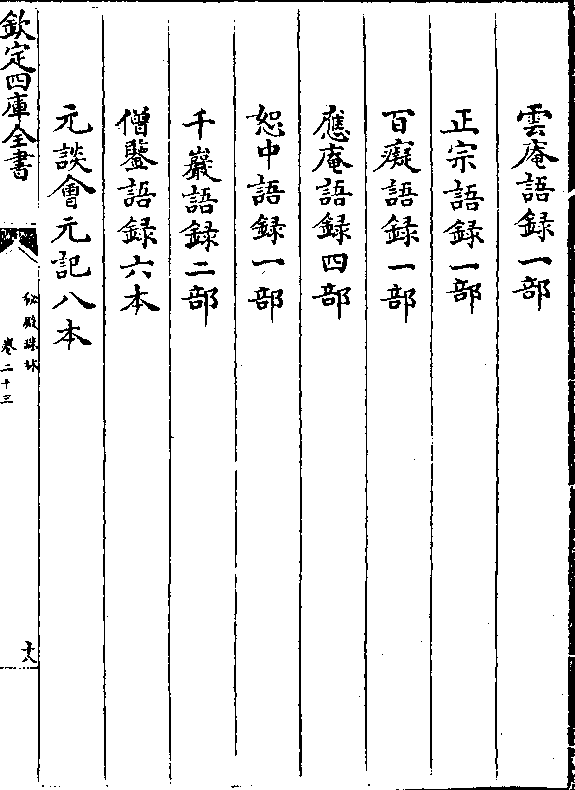 雲庵語録一部
正宗語録一部
百癡語録一部
應庵語録四部
恕中語録一部
千巖語録二部
僧鑒語録六本
元談會元記八本
欽定四庫全書
秘殿珠林
卷二十三